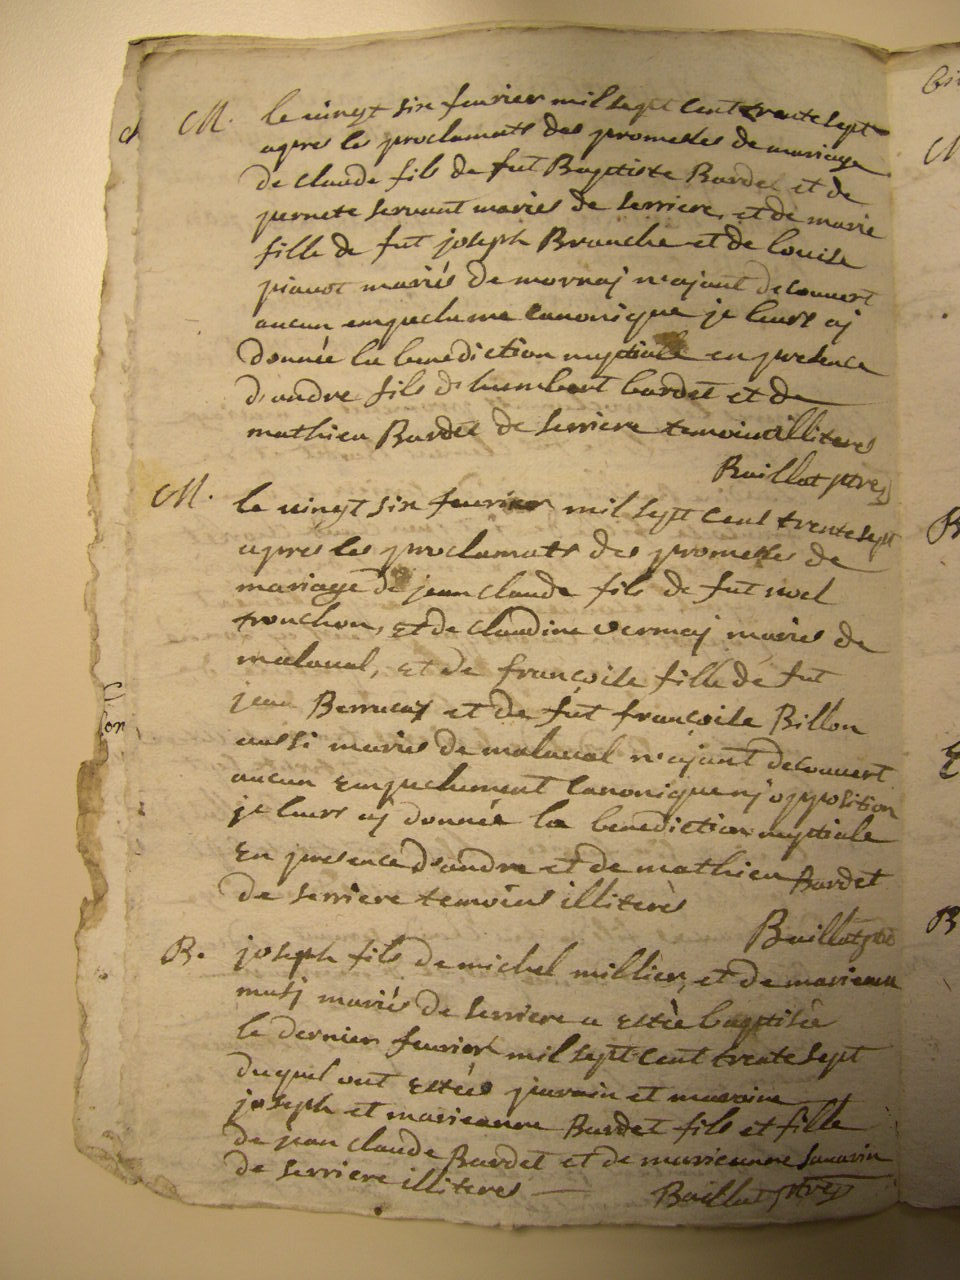 M. le vingt six fevrier mil sept cent trente sept
apres les proclamats des promesses de mariage
de claude fils de fut Baptiste Bardet et de
pernete servant mariés de serriere, et de marie
fille de fut joseph Branche et de louise
pianot mariés de mornaj n'ajant decouvert
aucun empecheme canonique je leurs aj
donnée la benediction nuptiale en presence
d'andre fils d'humbert bardet et de
mathieu Bardet de serriere temoins illiteres
Baillat ptre
M. le vingt six fevrier mil sept cent trente sept
apres les proclamats des promesses de
mariage de jean claude fils de fut noel
tronchon, et de claudine vermaj mariés de
malaval, et de françoise fille de fut
jean et de fut françoise Billon
aussi mariés de malaval n'ajant decouvert
aucun empechement canonique nj opposition
je leurs aj donnée la benediction nuptiale
En presence d'andre et de mathieu Bardet
de serriere temoins illiterés
Baillat ptre
B. joseph fils de michel millier, et de marieanne
mariés de serriere a estée baptisée
le dernier fevrier mil sept cent trente sept
duquel ont estées parain et maraine
joseph et marieanne Bardet fils et fille
de jean claude Bardet et de marieanne savarin
de serriere illiteres
Baillat ptre